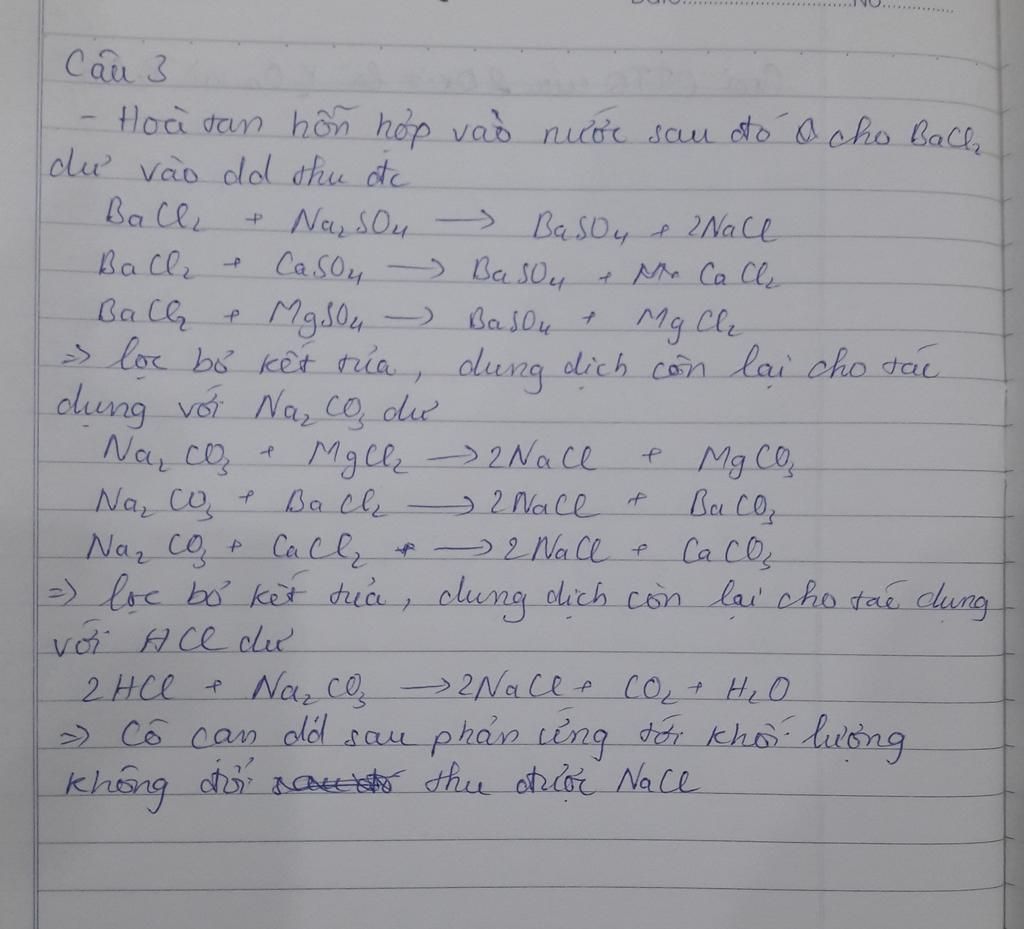 No
Câu 3
- Hoà tan hỗn hợp vào nước sau đó cho BaCl₂
dư vào dd thu đc
BaCl₂ + Na₂SO₄ → BaSO₄ + 2NaCl
BaCl₂ + CaSO₄ → BaSO₄ + CaCl₂
BaCl₂ + MgSO₄ → BaSO₄ + MgCl₂
=> lọc bỏ kết tủa, dung dịch còn lại cho tác
dụng với Na₂CO₃ dư
Na₂CO₃ + MgCl₂ → 2NaCl + MgCO₃
Na₂CO₃ + BaCl₂ → 2NaCl + BaCO₃
Na₂CO₃ + CaCl₂ → 2NaCl + CaCO₃
=> lọc bỏ kết tủa, dung dịch còn lại cho tác dụng
với HCl dư
2HCl + Na₂CO₃ → 2NaCl + CO₂ + H₂O
=> Cô cạn dd sau phản ứng tới khối lượng
không đổi thu được NaCl